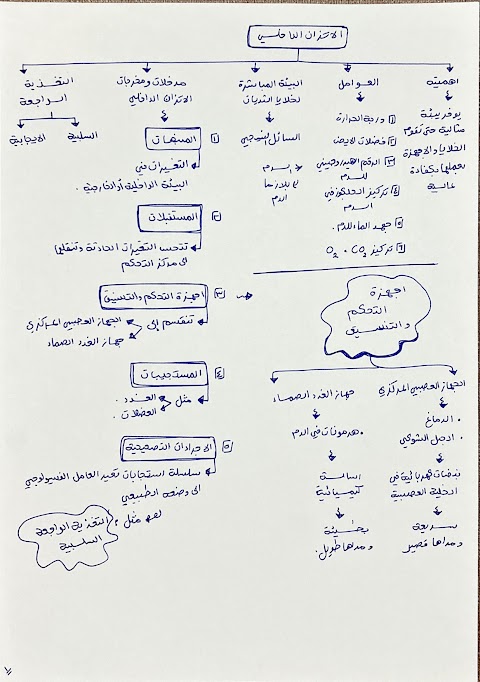 الاتزان الداخلي
اهميته
يوفر بيئة
مثالية حتى تقوم
الخلايا والاجهزة
بعملها بكفاءة
عالية
العوامل
١ درجة الحرارة
٢ فضلات الايض
٣ الرقم الهيدروجيني
للدم
٤ تركيز الجلوكوز في
الدم
٥ جهد الماء للدم.
٦ تركيز CO₂ . O₂
البيئة المباشرة
لخلايا الثديات
السائل النسيجي
الدم
بلازما
الدم
مدخلات ومخرجات
الاتزان الداخلي
١ المنبهات
التغيرات في
البيئة الداخلية أو الخارجية .
٢ المستقبلات
تتحسس التغيرات الحادثة وتنقلها
الى مركز التحكم
٣ اجهزة التحكم والتنسيق
تنقسم إلى
الجهاز العصبي المركزي
جهاز الغدد الصماء
٤ المستجيبات
مثل
الغدد .
العضلات .
٥ الاجراءات التصحيحية
سلسلة استجابات تعيد العامل الفسيولوجي
الى وضعه الطبيعي
مثل :
التغذية الراجعة
السلبية
التغذية
الراجعة
السلبية
الايجابية
اجهزة
التحكم
والتنسيق
الجهاز العصبي المركزي
. الدماغ
. الحبل الشوكي
نبضات كهربائية في
الخلية العصبية
سريعة
ومداها قصير
جهاز الغدد الصماء
. هرمونات في الدم
رسالة
كيميائية
بطيئة
ومداها طويل .